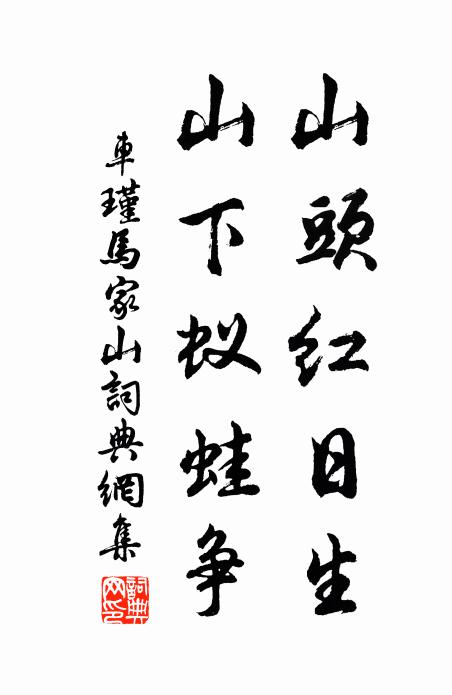 山頭紅日生
山下蚁蛙争
車瑾馬家山詞典網集
詞典網印